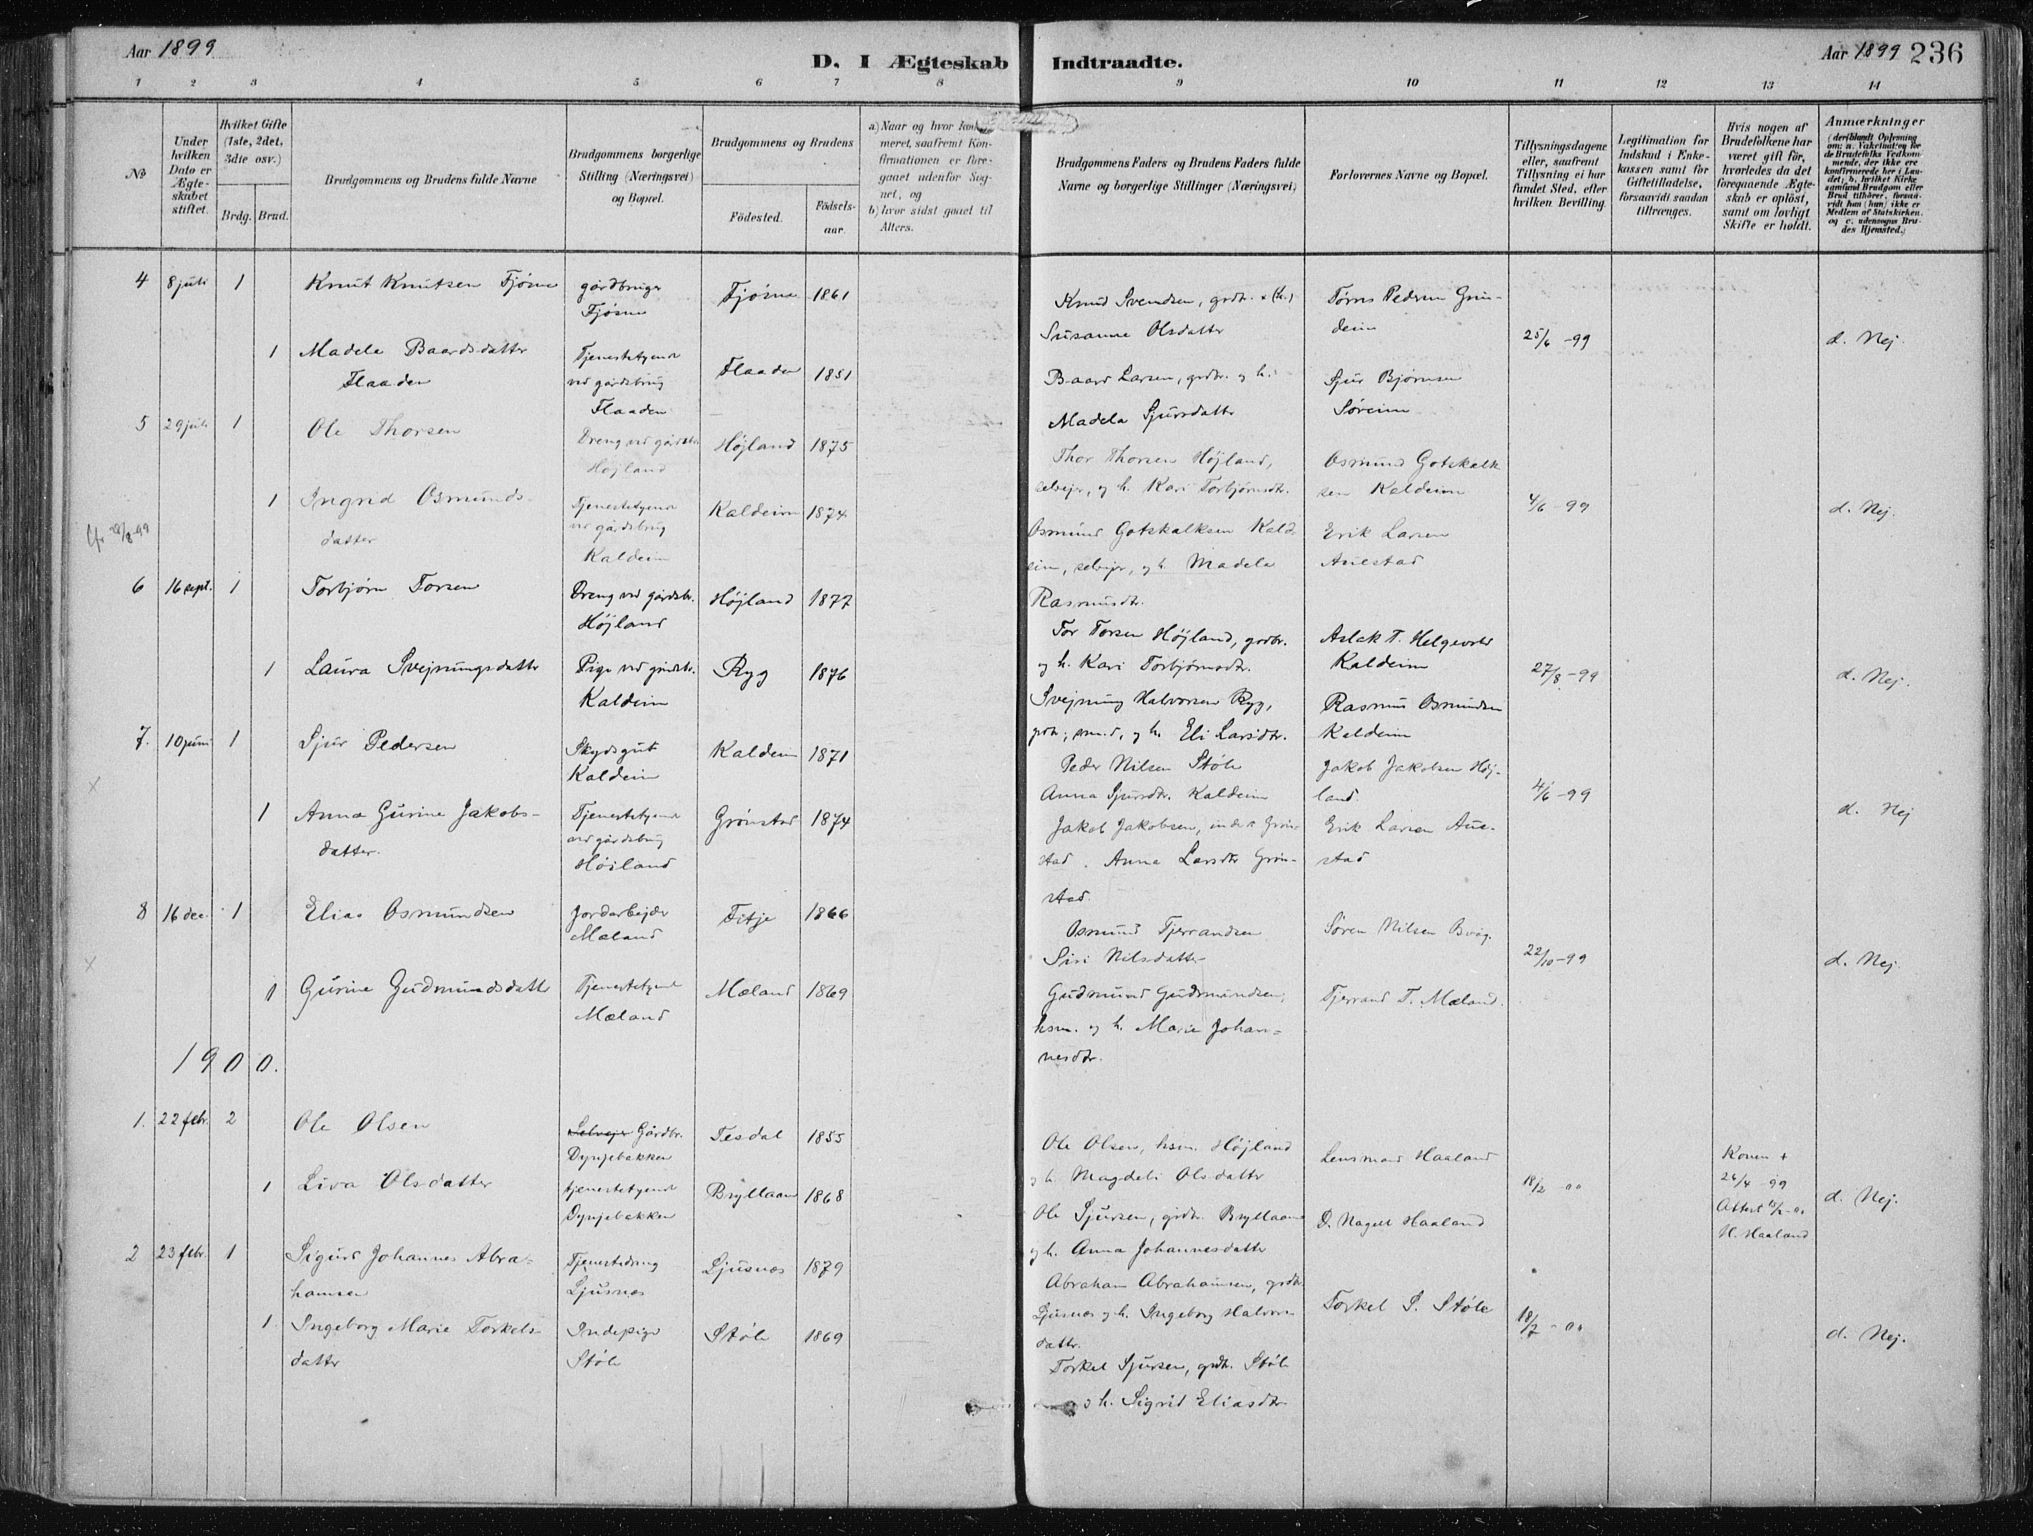 Aar 1899
D. I Ægteskab Indtraadte.
Aar 1899 236
1 2 3 4 5 6 7 8 9 10 11 12 13 14
No
Under hvilken Dato er Ægteskabet stiftet.
Hvilket Gifte (1ste, 2det, 3die osv.)
Brdg. Brud.
Brudgommens og Brudens fulde Navne
Brudgommens borgerlige Stilling (Næringsvei) og Bopæl.
Brudgommens og Brudens
Fødested.
Fødselsaar.
a) Naar og hvor konfirmeret, saafremt Konfirmationen er foregaaet udenfor Sognet, og
b) hvor sidst gaaet til Alters.
Brudgommens Faders og Brudens Faders fulde Navne og borgerlige Stillinger (Næringsvei)
Forlovernes Navne og Bopæl.
Tillysningsdagene eller, saafremt Tillysning ei har fundet Sted, efter hvilken Bevilling.
Legitimation for Indskud i Enkekassen samt for Giftetilladelse, forsaavidt saadan tiltrænges.
Hvis nogen af Brudefolkene har været gift før, hvorledes da det foregaaende Ægteskab er opløst, samt om lovligt Skifte er holdt.
Anmærkninger
4 8 juli 1 Knut Knutsen Fjøsne
gårdbruger
Fjøsne
Fjøsne 1861
Knud Svendsen, grdbr.
Susanne Olsdatter
Tørres Pedersen Grindeim
25/6 -99
d. Nej.
1 Madela Baardsdatter
Flaaden
Tjenestetyend
ved gårdsbrug
Flaaden
Flaaden 1851
Baard Larsen, grdbr. og h.
Madela Sjursdatter
Sjur Bjørnsen
Søreim
5 29 juli 1 Ole Thorsen
Dreng ved gårdsbr.
Højland
Højland 1875
Thor Thorsen Højland,
selvejer, og h. Kari Torbjørnsdtr.
Osmund Gotskalk
sen Kaldeim
4/6 -99
d. Nej.
1 Ingrid Osmunds-
datter
Tjenestetyend
ved gårdsbrug
Kaldeim
Kaldeim 1874
Osmund Gotskalksen Kald
eim, selvejer, og h. Madela
Rasmusdtr.
Erik Larsen
Auestad
6 16 sept. 1 Torbjørn Torsen
Dreng ved gårdsbr.
Højland
Højland 1877
Tor Torsen Højland, grdbr.
og h. Kari Torbjørnsdtr.
Aslak T. Helgevold
Kaldeim
27/8 -99
d. Nej.
1 Laura Svejnungsdatter
Pige ved gårdsbr.
Kaldeim
Ryg 1876
Svejnung Halvorsen Ryg,
og h. Eli Larsdtr.
Rasmus Osmundsen
Kaldeim
7. 10 juni 1 Sjur Pedersen
Skydsgut
Kaldeim
Kaldeim 1871
Peder Nilsen Støle
Anna Sjursdtr. Kaldeim
Jakob Jakobsen Høj-
land.
4/6 -99
d. Nej
1 Anna Gurine Jakobs-
datter.
Tjenestetyend
ved gårdsbrug
Højland
Grønstad 1874
Jakob Jakobsen, Grøn-
stad. Anna Larsdtr Grøn-
stad.
Erik Larsen Aue-
stad
8 16 dec. 1 Elias Osmundsen
Jordarbejder
Mæland
Fitje 1866
Osmund Tjerrandsen
Siri Nilsdatter
Søren Nilsen
22/10 -99
d. Nej
1 Gurine Gudmundsdatter
Tjenestetyend
Mæland
Mæland 1869
Gudmund Gudmundsen,
hsm. og h. Marie Johan-
nesdtr.
Tjerrand T. Mæland.
1900.
1. 22 febr. 2 Ole Olsen
Selvejer Gårdbr.
Dynjebakken
Tesdal 1855
Ole Olsen, hsm. Højland
og h. Magdeli Olsdatter
Lensmand Haaland
18/2 -00
Konen +
26/4 -99
Attest
H. Haaland
d. Nej.
1 Liva Olsdatter
tjenestetyend
Dynjebakken
Bryllaan 1868
Ole Sjursen, grdbr. Bryllaan
og h. Anna Johannesdatter
D. Nagell Haaland
2 23 febr. 1 Sigurd Johannes Abra-
hamsen
Tjenestedreng
Ljusnæs
Ljusnæs 1879
Abraham Abrahamsen, grdbr.
Ljusnæs og h. Ingeborg Halvors-
datter.
Torkel S. Støle
18/2 -00
d. Nej.
1 Ingeborg Marie Torkels-
datter
Indepige
Støle
Støle 1869
Torkel Sjursen, grdbr. Støle
og h. Sigrid Eliasdtr